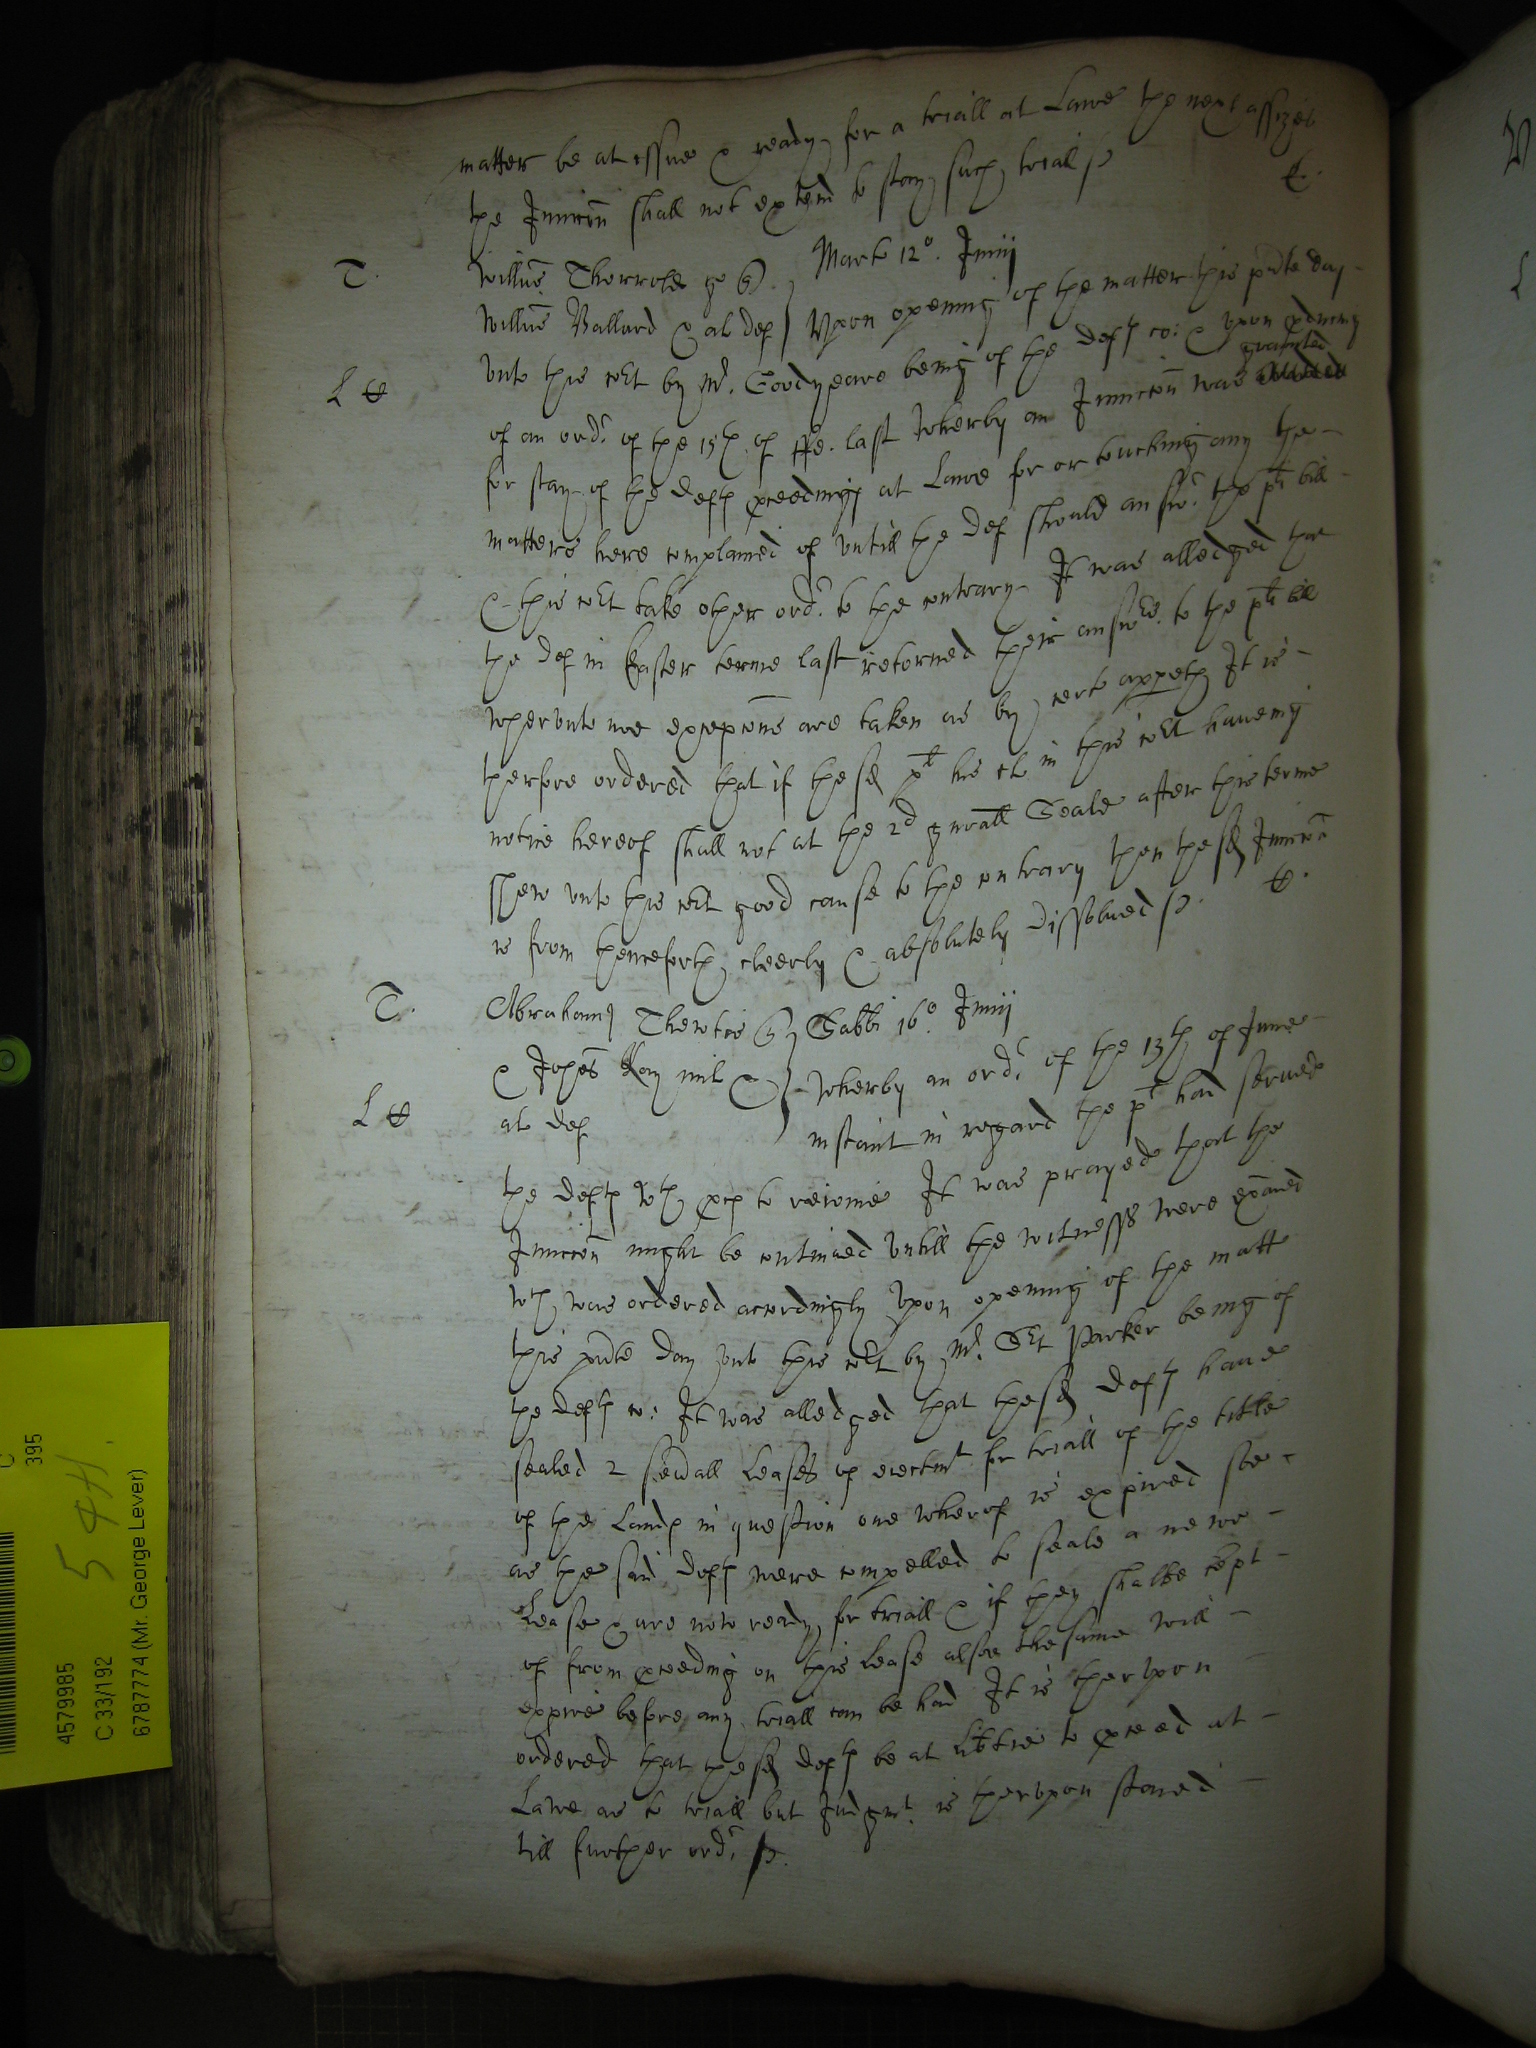 matter be at yssue & ready for a triall at Lawe the next assizes
the Iniuccon shall not extend to stay such triall
T. Willus Therrolde quer
Marto 12°. Junij
Willus Ballard & al def Vpon openinge of the matter this pnte day
unto this cort by Mr. Goodyeare being of the defts co: & upon readinge
L granted
of an ordr. of the 15th of ffe. last wherby an Iniuccon was
for stay of the defts proceedings at Lawe for or touching any the
matters here complained of untill the def should answr. the plts bill
& this cort take other ordr. to the contrary It was alledged that
the def in Easter terme last retorned their answere to the plts bill
wherunto noe excepcons are taken as by certe appeth It is
therfore ordered that if the sd plt his clo in this cort haveing
notice hereof shall not at the 2d gnrall Seale after this terme
shew unto this cort good cause to the contrary then the sd Iniuccon
is from henceforth cleerly & absolutely dissolved
T. Abrahamus Thewtis quer
Sabbi 16°. Junij
& Johes Kay mil &
Wherby an ordr. of the 13th of June
L al def
instant in regard the plt had served
the defts wth proces to reioine It was prayed that the
Iniuccon might be continued untill the witnesses were examed
wch was ordered accordingly Vpon opening of the matter
this pnte day unto this cort by Mr. Sert Parker being of
the defts co: It was alledged that the sd defts have
sealed 2 sevall Leases of eiectmt for triall of the title
of the Lands in question one wherof is expired soe
as the said defts were compelled to seale a newe
Lease & are now ready for triall & if they shalbe kept
of from proceeding on this Lease alsoe the same will
expire before any triall can be had It is therupon
ordered that the sd defts be at libtie to proceed at
Lawe as to triall but Judgmt. is therupon staied
till further ordr.
C
395
5 4H.
4579985
C 33/192
6787774 (Mr. George Lever)